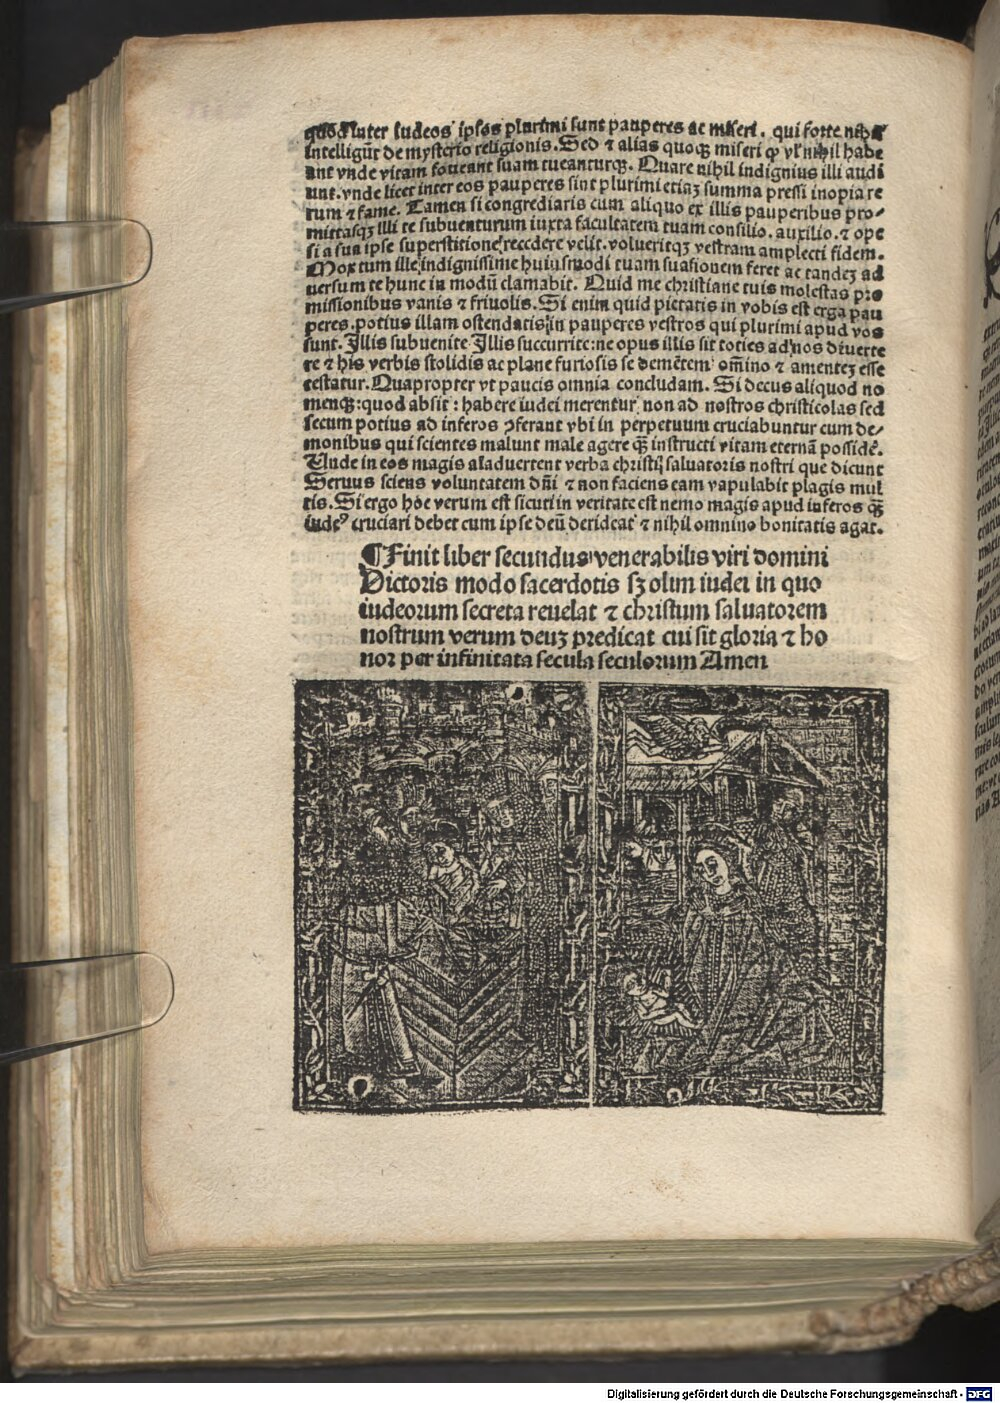 quod Inter iudeos ipsos plurimi sunt pauperes ac miseri. qui forte nihil
intelligūt de mysterio religionis. Sed ⁊ alias quoqꝫ miseri ꝙ vl' nihil habe
ant vnde vitam foueant suam tueanturqꝫ. Quare nihil indignius illi audi
unt. vnde licet inter eos pauperes sint plurimi etiaꝫ summa pressi inopia re
rum ⁊ fame. Tamen si congrediaris cum aliquo ex illis pauperibus pro⸗
mittasqꝫ illi te subuenturum iuxta facultatem tuam consilio. auxilio. ⁊ ope
si a sua ipse superstitione reccdere velit. volueritqꝫ vestram amplecti fidem.
Mox tum ille indignissime huiusmodi tuam suasionem feret ac tandeꝫ ad
uersum te hunc in modū clamabit. Quid me christiane tuis molestas pro
missionibus vanis ⁊ friuolis. Si enim quid pietatis in vobis est erga pau
peres. potius illam ostendatis in pauperes vestros qui plurimi apud vos
sunt. Illis subuenite Illis succurrite: ne opus illis sit toties ad nos diuerte
re ⁊ his verbis stolidis ac plane furiosis se demētem om̄ino ⁊ amenteꝫ esse
testatur. Quapropter vt paucis omnia concludam. Si decus aliquod no
menqꝫ: quod absit: habere iudei merentur non ad nostros christicolas sed
secum potius ad inferos ꝓferant vbi in perpetuum cruciabuntur cum de⸗
monibus qui scientes malunt male agere qꝫ̄ instructi vitam eternā possidē.
Unde in eos magis aīaduertent verba christi saluatoris nostri que dicunt
Seruus sciens voluntatem dn̄i ⁊ non faciens eam vapulabit plagis mul
tis. Si ergo hoc verum est sicuti in veritate est nemo magis apud inferos qꝫ̄
iudeꝰ cruciari debet cum ipse deū derideat ⁊ nihil omnino bonitatis agat.
¶Finit liber secundus venerabilis viri domini
Victoris modo sacerdotis sꝫ olim iudei in quo
iudeorum secreta reuelat ⁊ christum saluatorem
nostrum verum deuꝫ predicat cui sit gloria ⁊ ho
nor per infinitata secula seculorum Amen
Digitalisierung gefördert durch die Deutsche Forschungsgemeinschaft - DFG